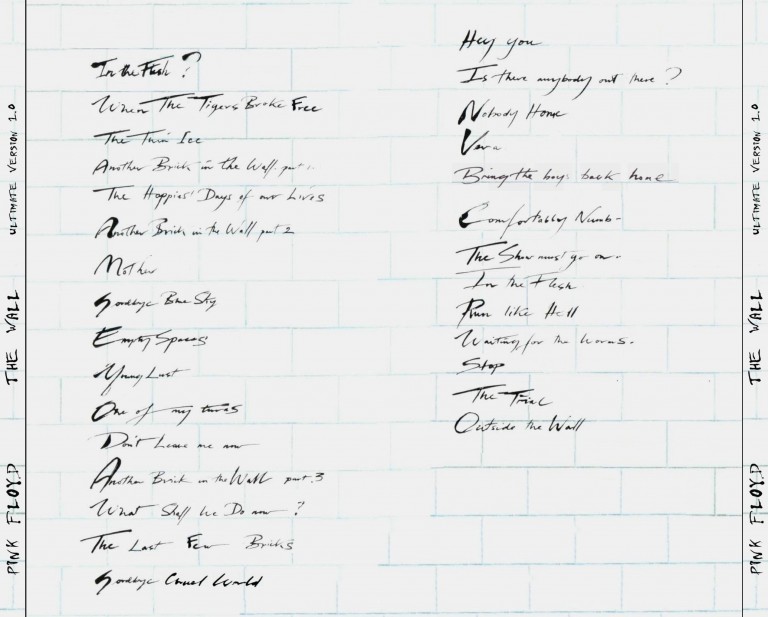 PINK FLOYD THE WALL ULTIMATE VERSION 2.0
In the Flesh ?
When The Tigers Broke Free
The Thin Ice
Another Brick in the Wall part 1.
The Happiest Days of our Lives
Another Brick in the Wall part 2
Mother
Goodbye Blue Sky
Empty Spaces
Young Lust
One of my turns
Don't Leave me now
Another Brick in the Wall part 3
What Shall We Do now ?
The Last Few Bricks
Goodbye Cruel World
Hey you
Is there anybody out there ?
Nobody Home
Vera
Bring the boys back home
Comfortably Numb
The Show must go on.
In the Flesh
Run like Hell
Waiting for the Worms.
Stop
The Trial
Outside the Wall
PINK FLOYD THE WALL ULTIMATE VERSION 2.0